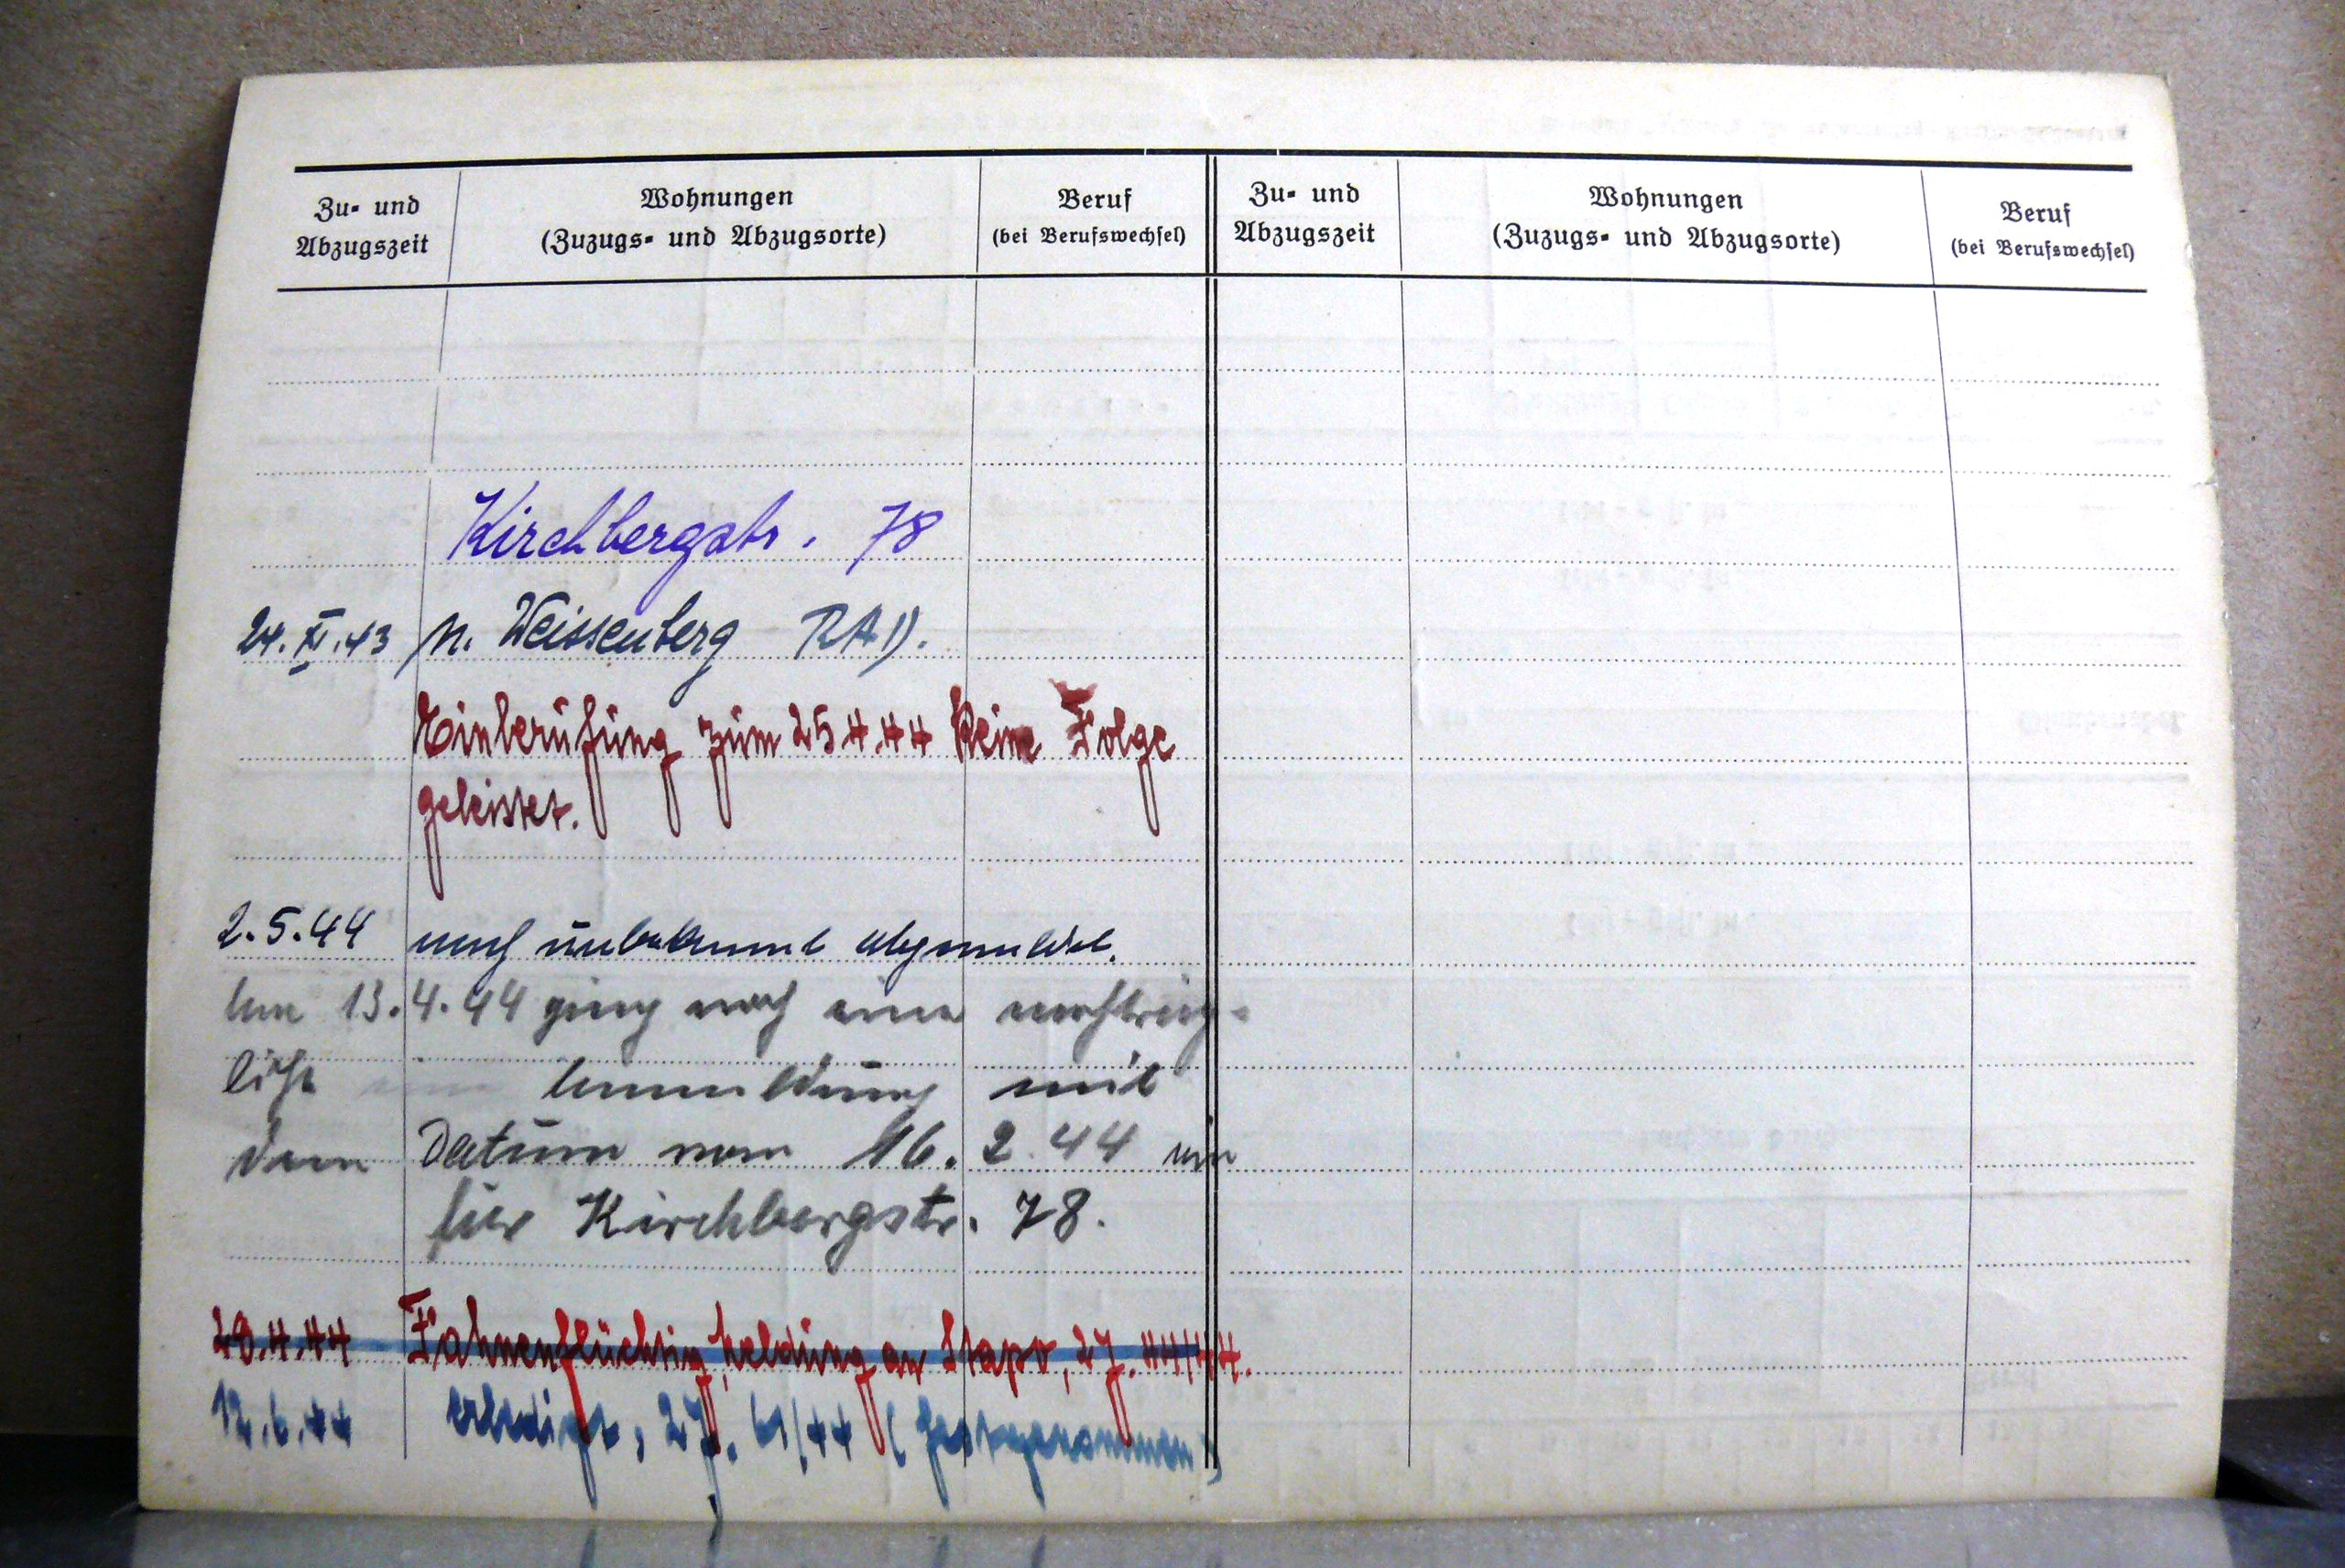 Zu- und Abzugszeit
Wohnungen (Zuzugs- und Abzugsorte)
Beruf (bei Berufswechsel)
Zu- und Abzugszeit
Wohnungen (Zuzugs- und Abzugsorte)
Beruf (bei Berufswechsel)
Kirchbergstr. 78
24.XI.43 n. Weissenberg RAD.
Einberufung zum 25.4.44 keine Folge
geleistet.
2.5.44 nach unbekannt abgemeldet.
Am 13.4.44 ging noch eine nachträg-
liche Anmeldung mit
dem Datum vom 16.2.44 ein
für Kirchbergstr. 78.
28.4.44 Fahnenflüchtig, Meldung an Stapo, 44/44.
12.6.44 erledigt, 61/44 (festgenommen)